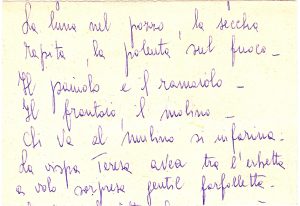 La luna nel pozzo, la secchia
rapita, la polenta sul fuoco -
Il paiolo e il ramaiolo -
Il frantoio, il molino -
Chi va al mulino si infarina:
La vispa Teresa avea tra l'erbetta
a volo sorpresa gentil farfalletta -